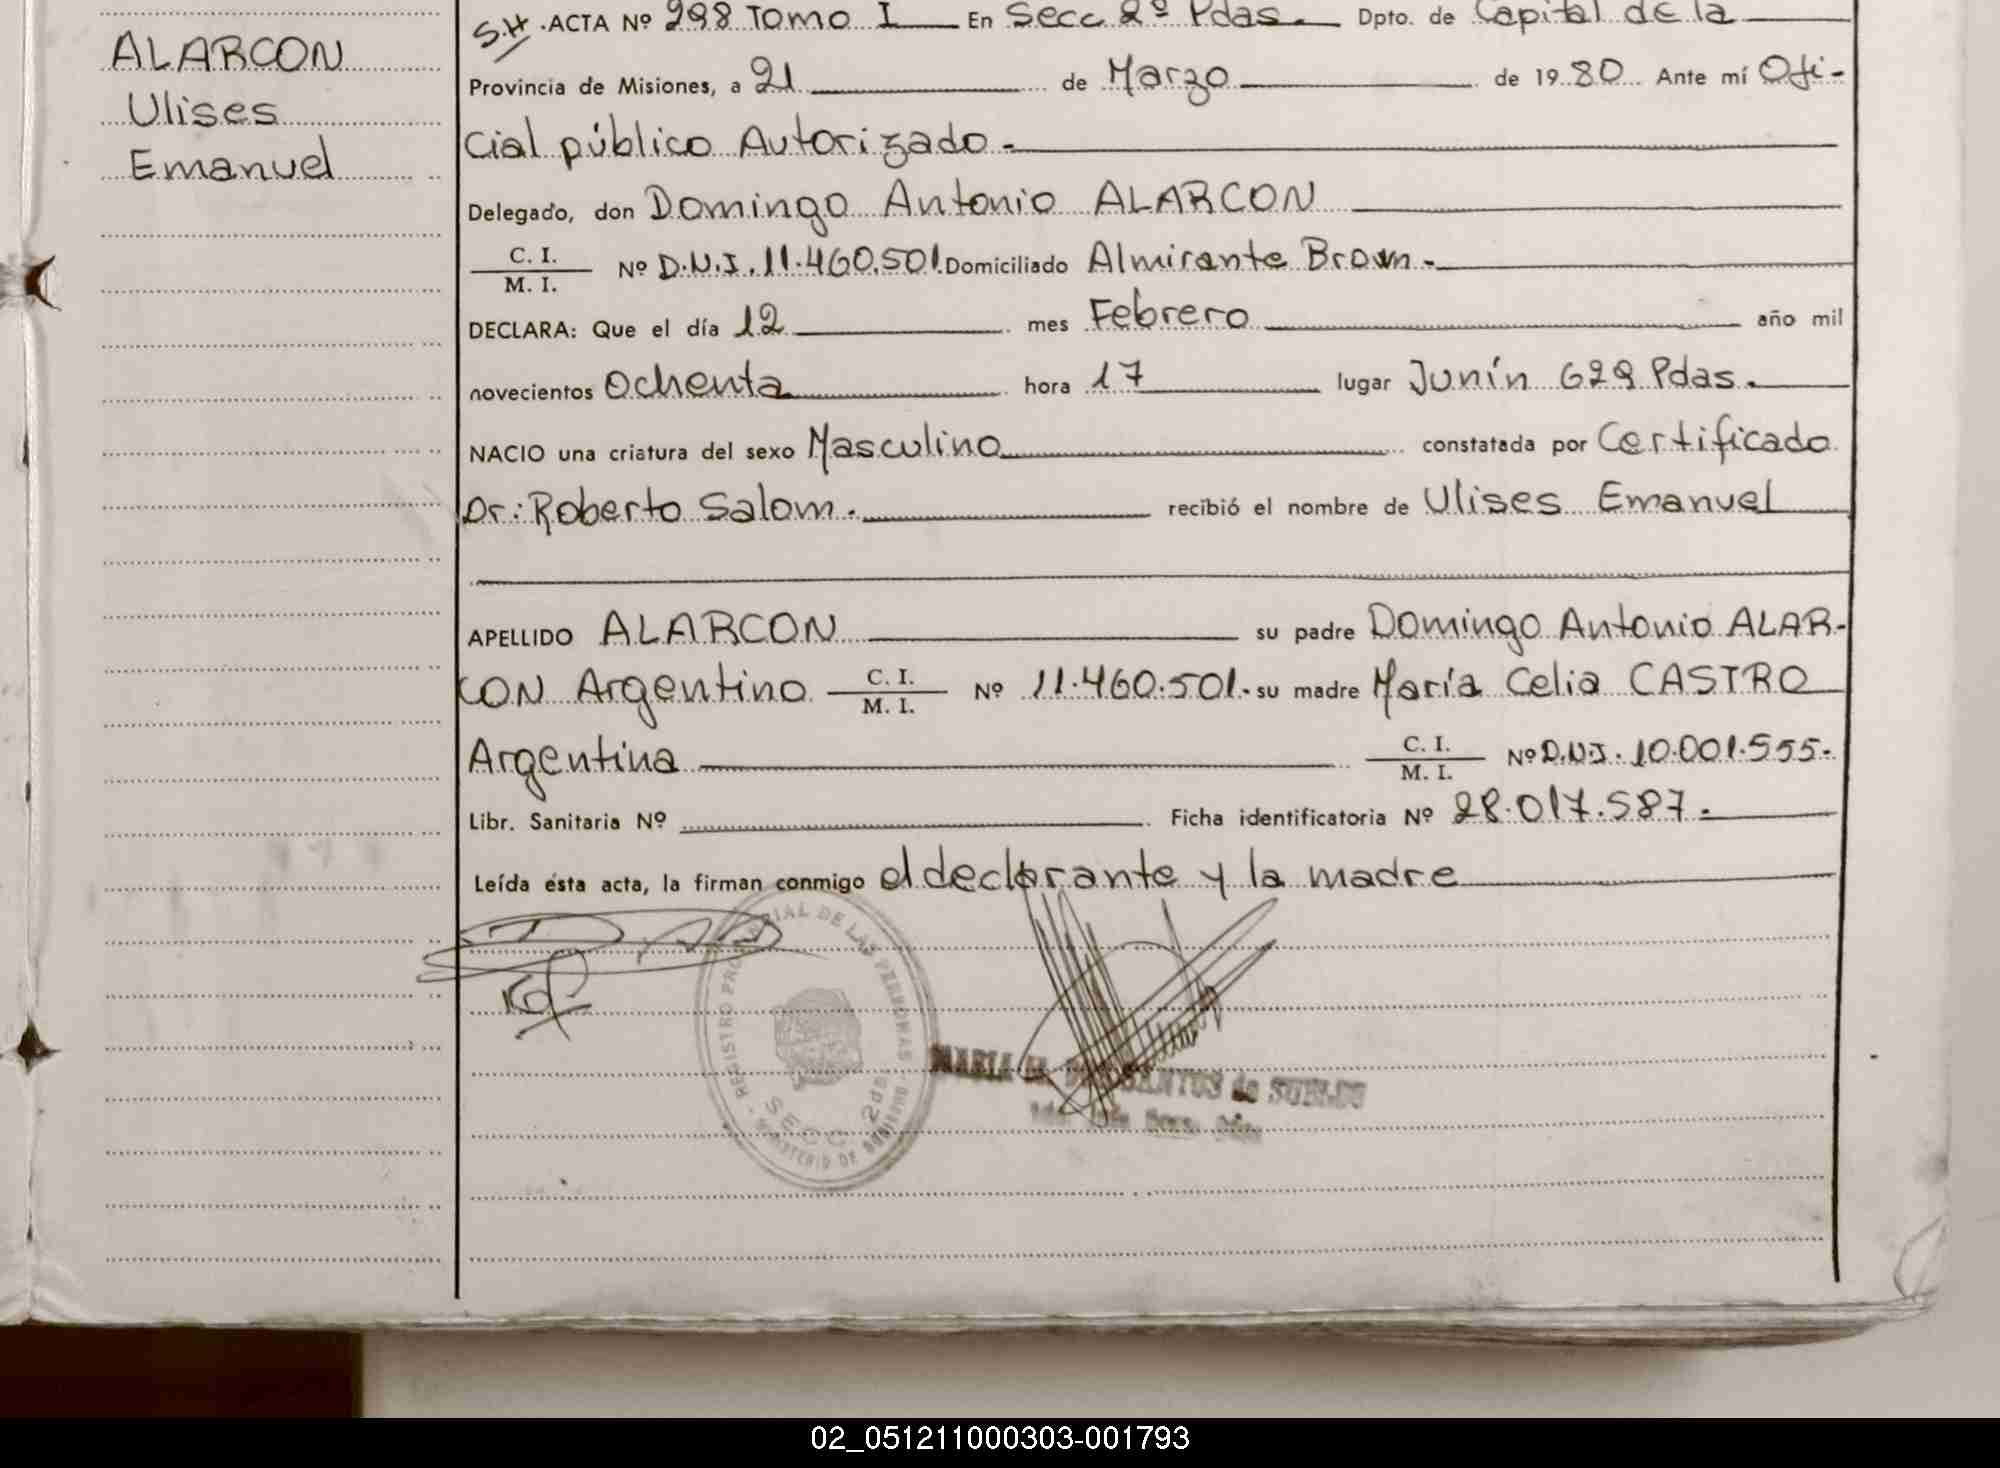 ALARCON
Ulises
Emanuel
S.H. ACTA Nº 298 Tomo I En Secc 2º Pdas. Dpto. de Capital de la
Provincia de Misiones, a 21 de Marzo de 1980 Ante mí Ofi-
cial público Autorizado.
Delegado, don Domingo Antonio ALARCON
C. I.
M. I.
Nº D.N.I. 11.460.501. Domiciliado Almirante Brown.
DECLARA: Que el día 12 mes Febrero año mil
novecientos Ochenta hora 17 lugar Junín 629 Pdas.
NACIO una criatura del sexo Masculino constatada por Certificado
Dr: Roberto Salom. recibió el nombre de Ulises Emanuel
APELLIDO ALARCON su padre Domingo Antonio ALAR-
CON Argentino C. I. M. I. Nº 11.460.501. su madre María Celia CASTRO
Argentina C. I. M. I. Nº D.N.I. 10.001.555.
Libr. Sanitaria Nº Ficha identificatoria Nº 28.017.587.
Leída ésta acta, la firman conmigo el declarante y la madre
REGISTRO PROVINCIAL DE LAS PERSONAS
SECC. 2da
MINISTERIO DE GOBIERNO
MARIA
de
02_051211000303-001793